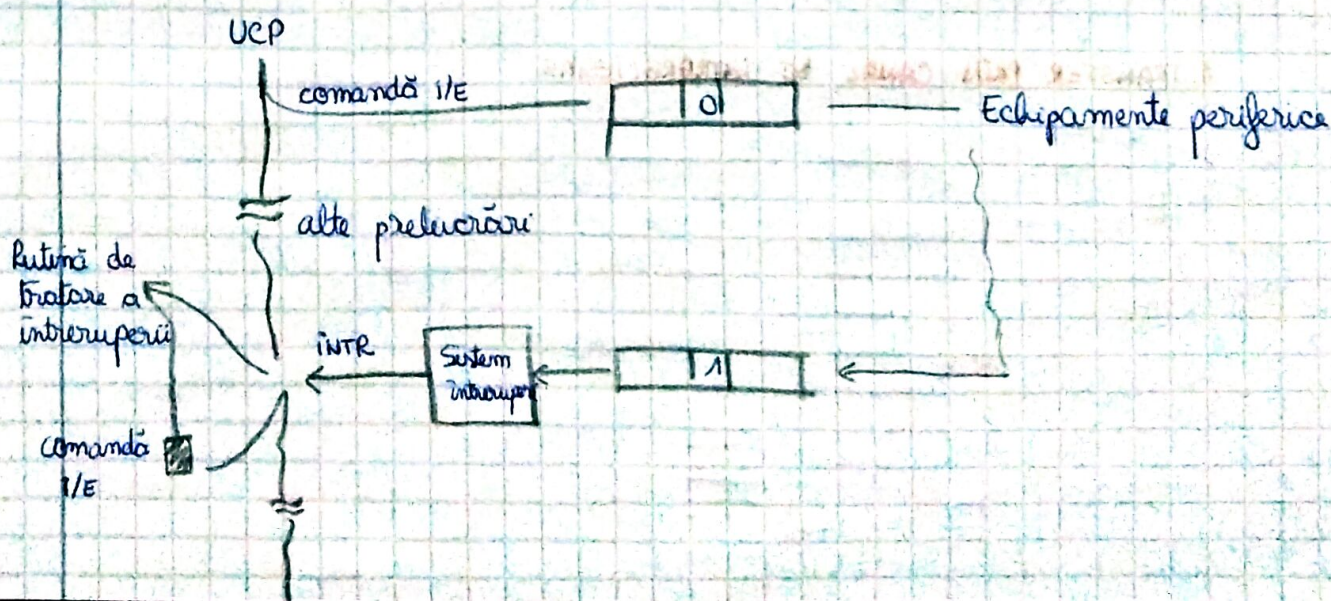 UCP
comandă I/E
0
Echipamente periferice
alte prelucrări
Rutină de
tratare a
întreruperii
INTR
Sistem
întreruperi
1
comandă
I/E